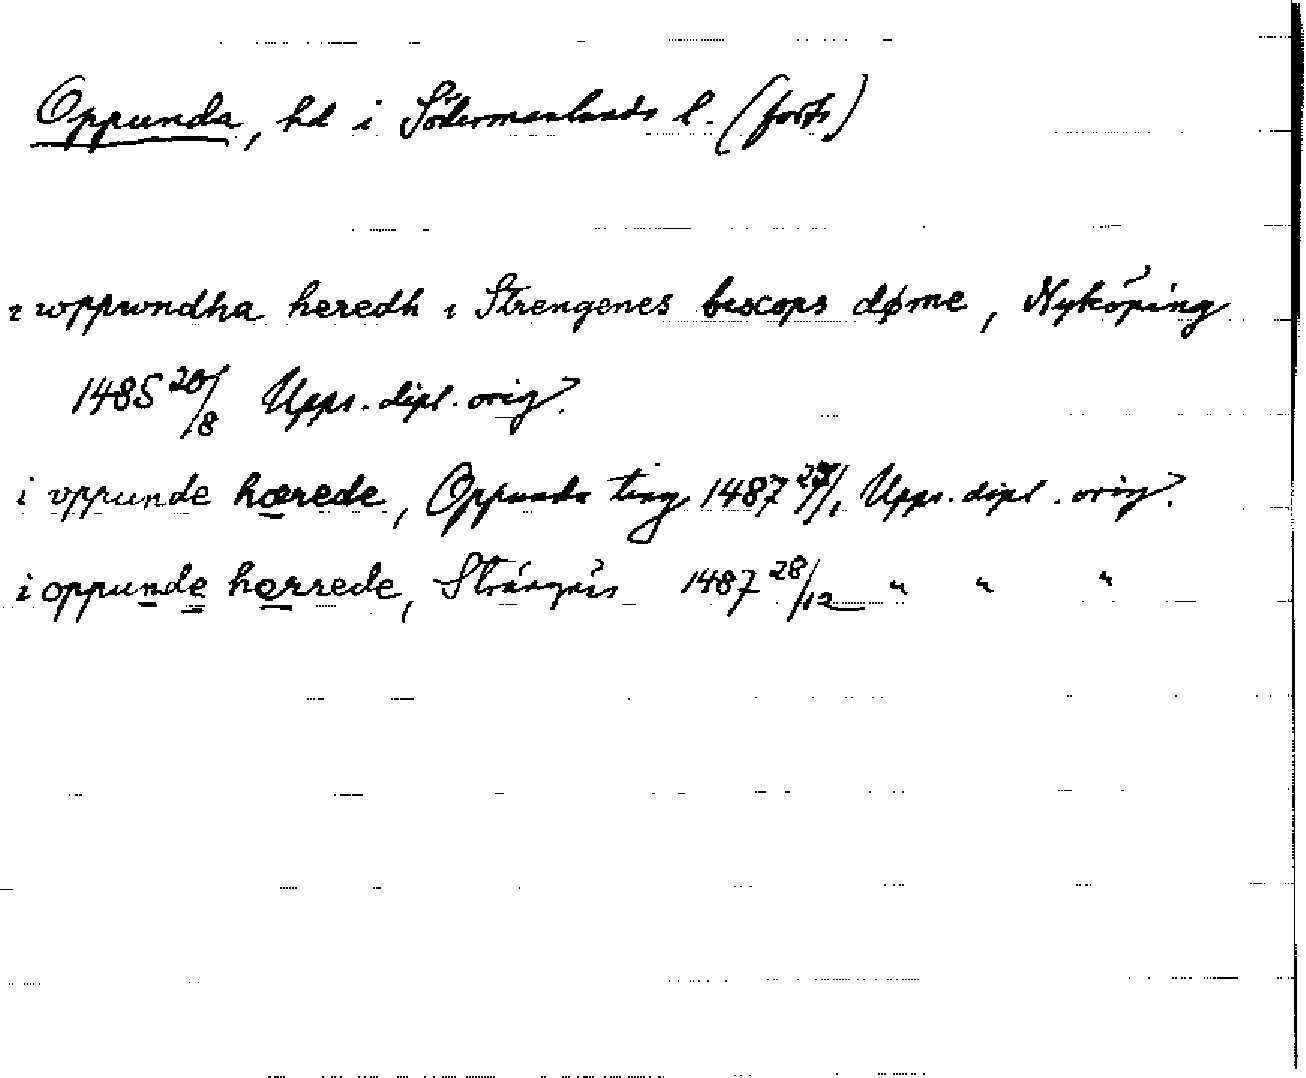 Oppunda, hd i Södermanlands l. (forts)
ı wppwndha heredh ı Strengenes bıscops døme, Nyköping
1485 20/8 Upps. dipl. orig.
i vppunde hærede, Oppunda ting 1487 /1 Upps. dipl. orig.
i oppunde hærrede, Strängnäs 1487 28/12 " " "